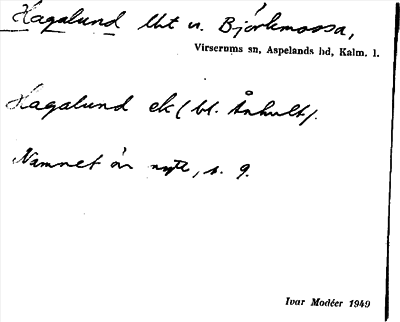 Hagalund lht u. Björkmossa,
Virserums sn, Aspelands hd, Kalm. l.
Hagalund ek (bl. Ånhult).
Namnet är nytt, s. 9.
Ivar Modéer 1949